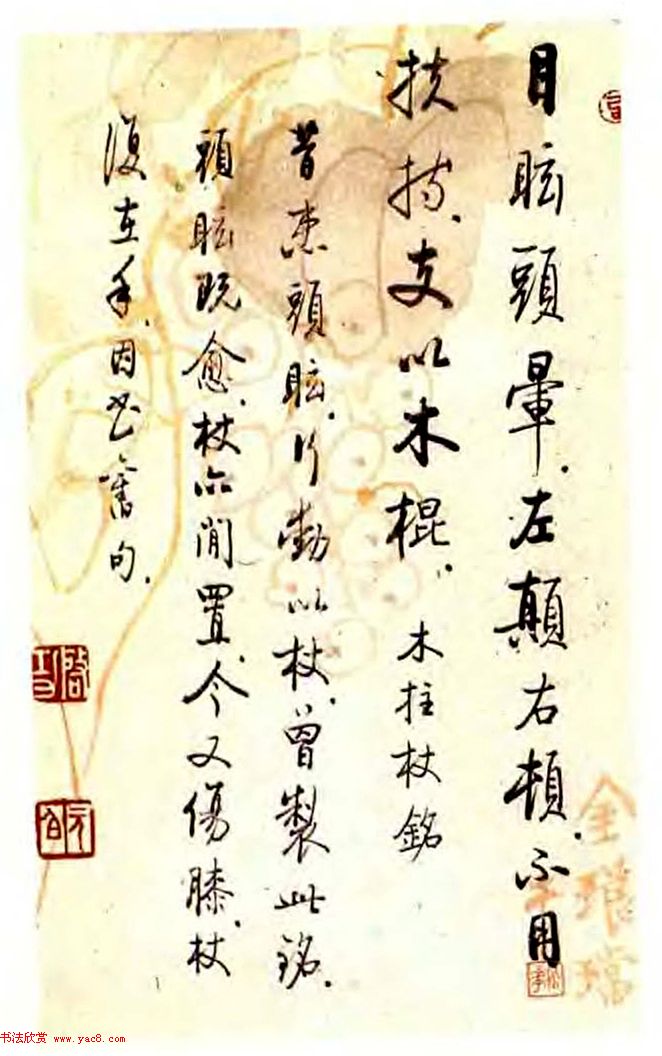 目眩頭暈。左顛右頓。不用
扶持。支以木棍。木拄杖銘
昔患頭眩。行動以杖。曾製此銘。
頭眩既愈。杖亦閒置。今又傷膝。杖
復在手。因書舊句。
啟功
元白
书法欣赏 www.yac8.com